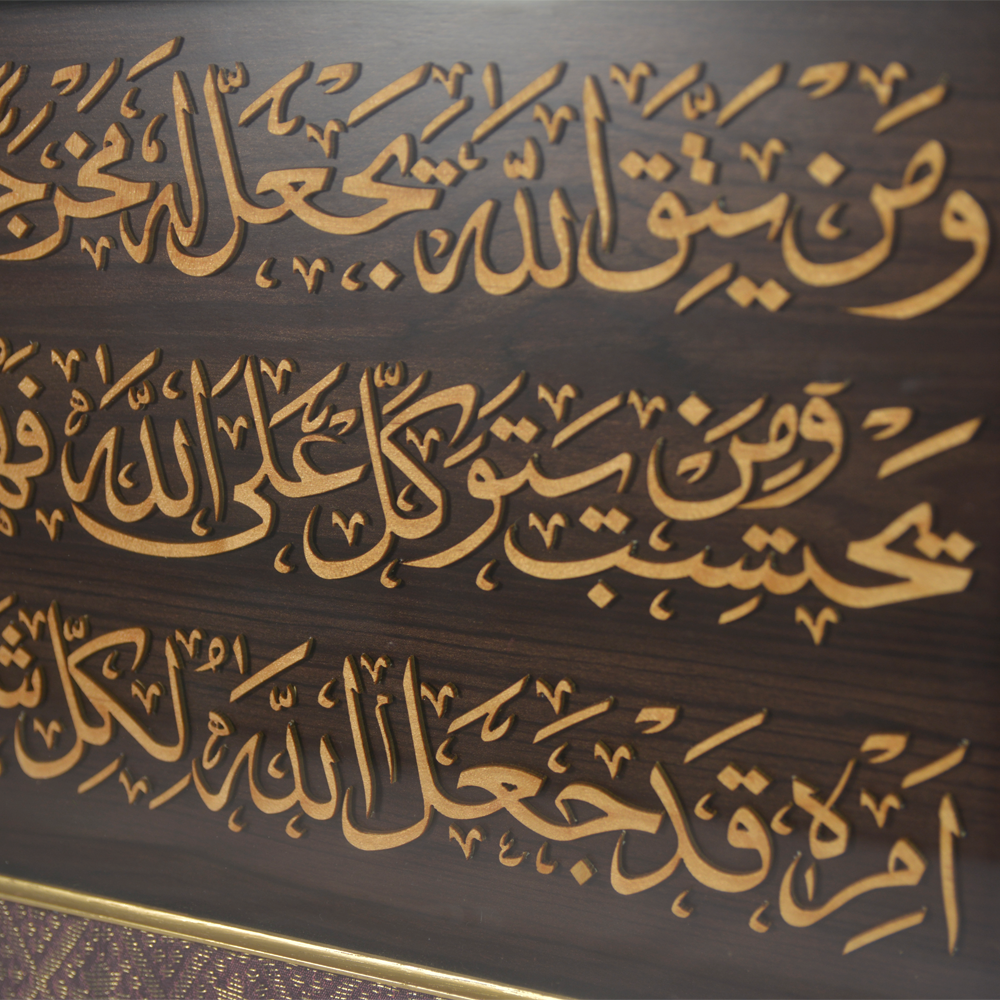 ومن يتق الله يجعل له مخرجا
يحتسب ومن يتوكل على الله فهو
امره قد جعل الله لكل